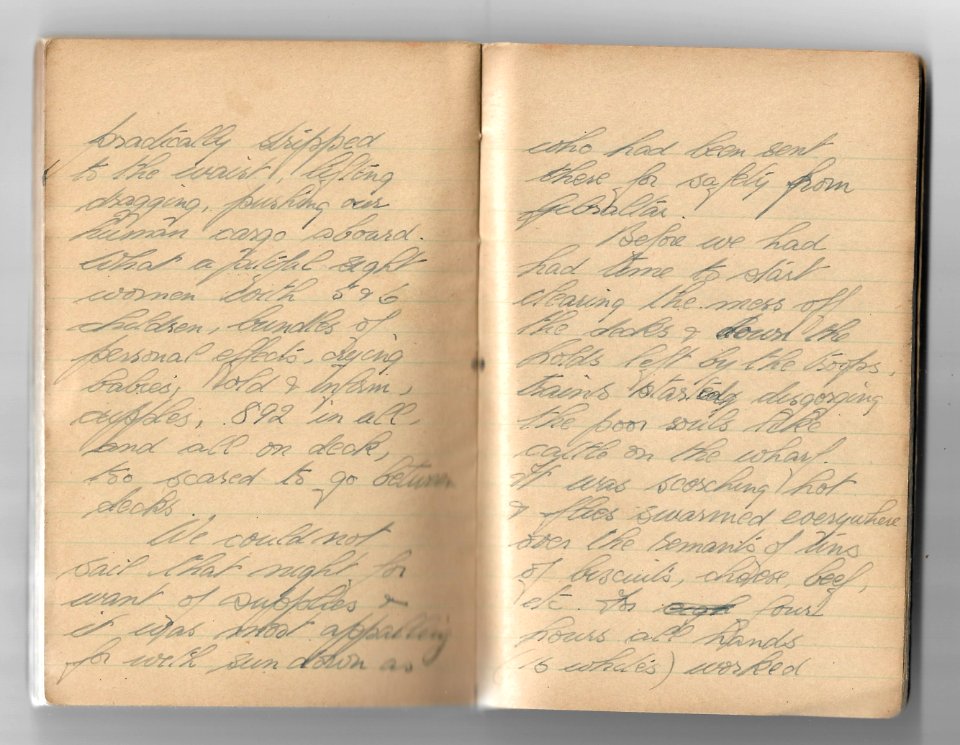 practically stripped
to the waist, lifting
dragging, pushing our
human cargo aboard.
What a pitiful sight
women with 5 & 6
children, bundles of
personal effects, crying
babies, old & infirm,
cripples, 892 in all,
and all on deck,
too scared to go between
decks.
We could not
sail that night for
want of supplies &
it was most appalling
for with sun down as
who had been sent
there for safety from
Gibraltar.
Before we had
had time to start
clearing the mess off
the decks & down the
holds left by the troops,
trains started disgorging
the poor souls like
cattle on the wharf.
It was scorching hot
& flies swarmed everywhere
over the remants of tins
of biscuits, cheese, beef,
etc. For four
hours all hands
(16 whites) worked